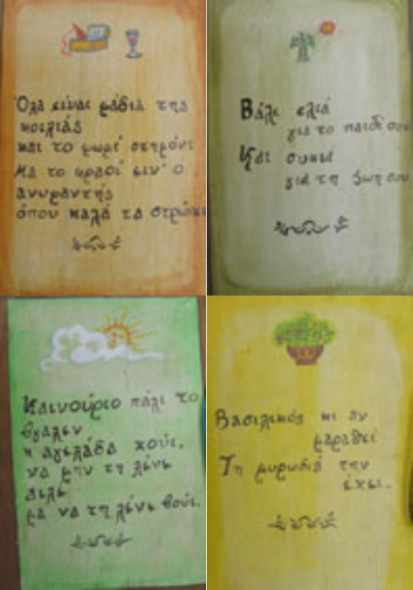 Όλα είναι ράδια της
κοιλιάς
και το ψωμί στηρόνι
Μα το κρασί ειν' ο
ανυφαντής
όπου καλά τα στρώνει
Βάλε ελιά
για το παιδί σου
Και συκιά
για τη ζωή σου
Καινούριο πάλι το
βγάλαν
η αγελάδα κούι,
να μην τη λένε
πιλε
μα να τη λένε βούι.
Βασιλικός κι αν
μαραθεί
Τη μυρωδιά την
έχει.